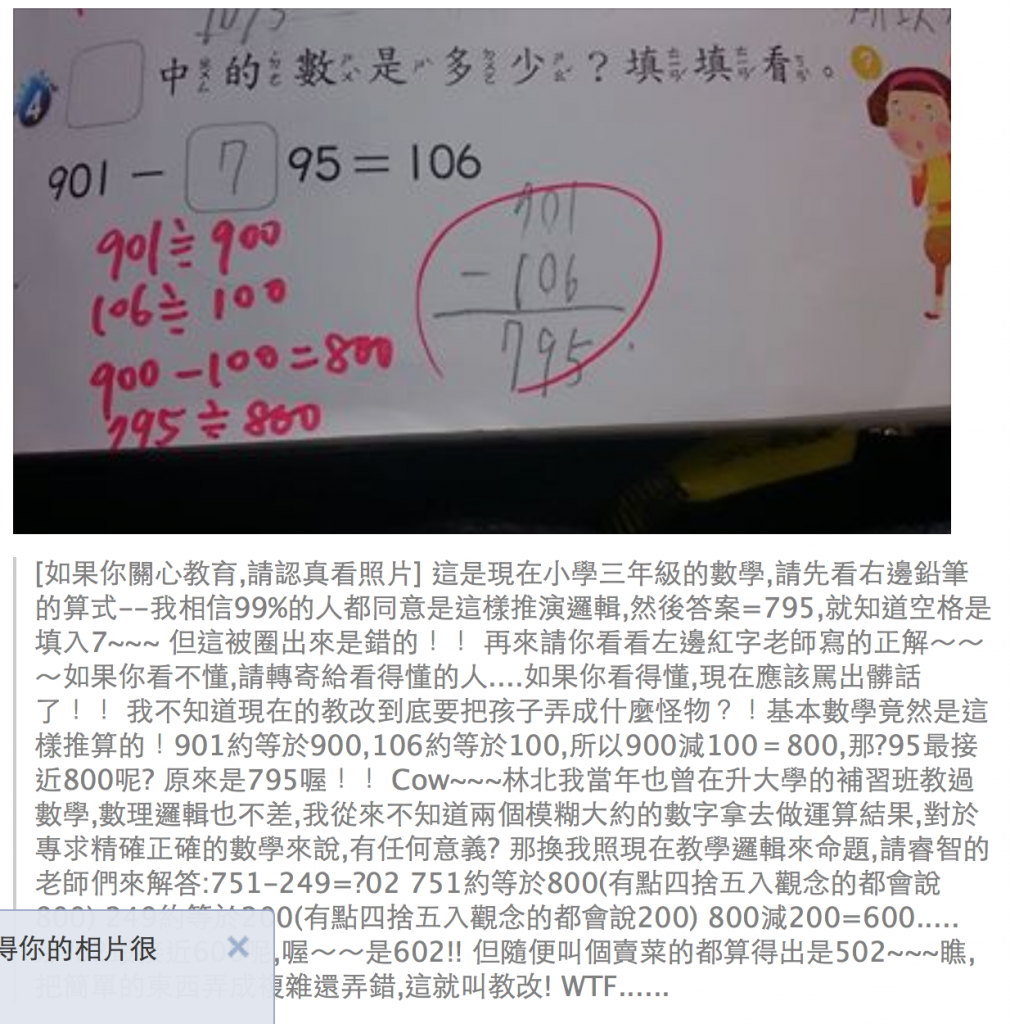 4 □中的數是多少？填填看。
901 − 7 95 = 106
901≒900
106≒100
900－100＝800
795≒800
901
－106
795
[如果你關心教育,請認真看照片] 這是現在小學三年級的數學,請先看右邊鉛筆
的算式--我相信99%的人都同意是這樣推演邏輯,然後答案=795,就知道空格是
填入7~~~ 但這被圈出來是錯的！！ 再來請你看看左邊紅字老師寫的正解～～
～如果你看不懂,請轉寄給看得懂的人....如果你看得懂,現在應該罵出髒話
了！！ 我不知道現在的教改到底要把孩子弄成什麼怪物？！基本數學竟然是這
樣推算的！901約等於900,106約等於100,所以900減100＝800,那?95最接
近800呢? 原來是795喔！！ Cow~~~林北我當年也曾在升大學的補習班教過
數學,數理邏輯也不差,我從來不知道兩個模糊大約的數字拿去做運算結果,對於
專求精確正確的數學來說,有任何意義? 那換我照現在教學邏輯來命題,請睿智的
老師們來解答:751-249=?02 751約等於800(有點四捨五入觀念的都會說
800) 249約等於200(有點四捨五入觀念的都會說200) 800減200=600.....
得你的相片很 ×
近60呢,喔～～是602!! 但隨便叫個賣菜的都算得出是502~~~瞧,
把簡單的東西弄成複雜還弄錯,這就叫教改! WTF......